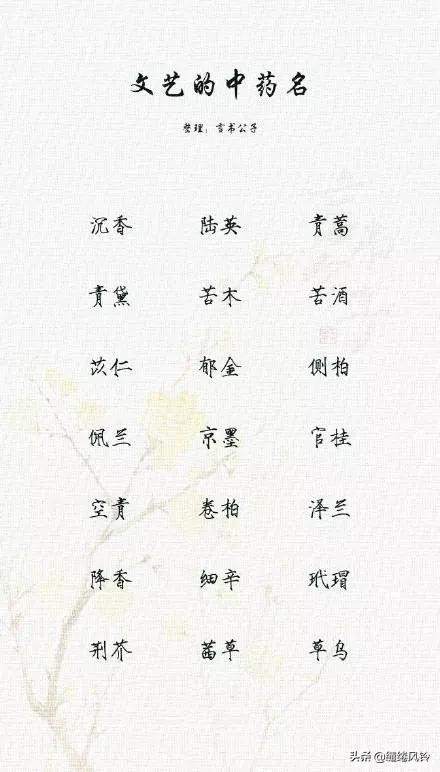 文艺的中药名
整理：言书公子
沉香 陆英 青蒿
青黛 苦木 苦酒
苡仁 郁金 侧柏
佩兰 京墨 官桂
空青 卷柏 泽兰
降香 细辛 玳瑁
荆芥 茜草 草乌
头条 @缱绻风铃